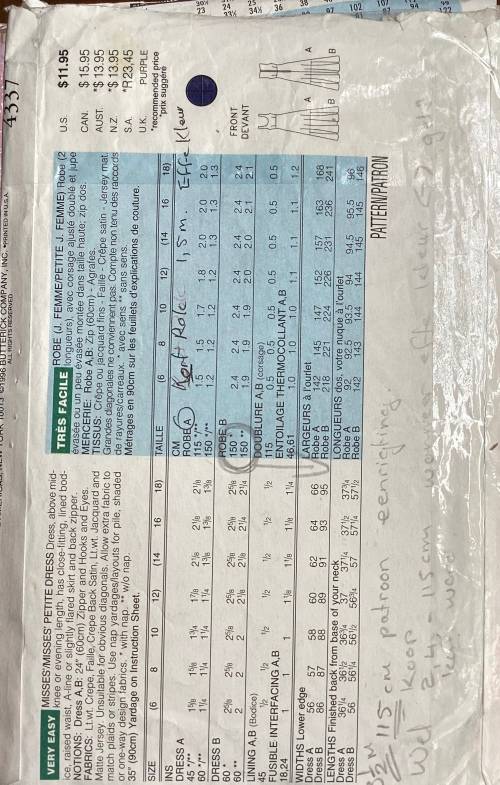 4337
©1996 BUTTERICK COMPANY, INC. •PRINTED IN U.S.A.
ALL RIGHTS RESERVED.
VERY EASY MISSES'/MISSES' PETITE DRESS Dress, above mid-
knee or evening length, has close-fitting, lined bod-
ice, raised waist, A-line or slightly flared skirt and back zipper.
NOTIONS: Dress A,B: 24" (60cm) Zipper and Hooks and Eyes.
FABRICS: Lt.wt. Crepe, Faille, Crepe Back Satin, Lt.wt. Jacquard and
Matte Jersey. Unsuitable for obvious diagonals. Allow extra fabric to
match plaids or stripes. Use nap yardages/layouts for pile, shaded
or one-way design fabrics. * with nap. ** w/o nap.
35" (90cm) Yardage on Instruction Sheet.
SIZE (6 8 10 12) (14 16 18)
INS
DRESS A
45 */** 1⅝ 1⅝ 1¾ 1⅞ 2⅛ 2⅛ 2⅛
60 */** 1¼ 1¼ 1¼ 1¼ 1⅜ 1⅜ 1⅜
DRESS B
60 * 2⅝ 2⅝ 2⅝ 2⅝ 2⅝ 2⅝ 2⅝
60 ** 2 2 2 2⅛ 2⅛ 2¼ 2¼
LINING A,B (Bodice)
45 ½ ½ ½ ½ ½ ½ ½
FUSIBLE INTERFACING A,B
18,24 1 1 1 1⅛ 1⅛ 1⅛ 1¼
WIDTHS Lower edge
Dress A 56 57 58 60 62 64 66
Dress B 86 87 88 89 91 93 95
LENGTHS Finished back from base of your neck
Dress A 36¼ 36½ 36¾ 37 37¼ 37½ 37¾
Dress B 56 56¼ 56½ 56¾ 57 57¼ 57½
TRÈS FACILE ROBE (J. FEMME/PETITE J. FEMME) Robe (2
longueurs), avec corsage ajusté doublé et jupe
évasée ou un peu évasée montée dans taille haute; zip dos.
MERCERIE: Robe A,B: Zip (60cm) - Agrafes.
TISSUS: Crêpe ou Jacquard fins - Faille - Crêpe satin - Jersey mat.
Grandes diagonales ne conviennent pas. Compte non tenu des raccords
de rayures/carreaux. * avec sens ** sans sens.
Métrages en 90cm sur les feuillets d'explications de couture.
TAILLE (6 8 10 12) (14 16 18)
CM Kort Rokee 1,5 m. Effe Kleur
ROBE A
115 */** 1.5 1.5 1.7 1.8 2.0 2.0 2.0
150 */** 1.2 1.2 1.2 1.2 1.3 1.3 1.3
ROBE B
150 * 2.4 2.4 2.4 2.4 2.4 2.4 2.4
150 ** 1.9 1.9 1.9 2.0 2.0 2.1 2.1
DOUBLURE A,B (corsage)
115 0.5 0.5 0.5 0.5 0.5 0.5 0.5
ENTOILAGE THERMOCOLLANT A,B
46,61 1.0 1.0 1.0 1.1 1.1 1.1 1.2
LARGEURS à l'ourlet
Robe A 142 145 147 152 157 163 168
Robe B 218 221 224 226 231 236 241
LONGUEURS dos, votre nuque à l'ourlet
Robe A 92 92.5 93.5 94 94.5 95.5 96
Robe B 142 143 144 144 145 145 146
U.S. $11.95
CAN. $15.95
AUST. *$13.95
N.Z. *$13.95
S.A. *R23.45
U.K. PURPLE
*recommended price
*prix suggéré
FRONT
DEVANT
A
B
A
B
PATTERN/PATRON
115 cm patroon eenrichting
Koop
2,45 - 115 cm